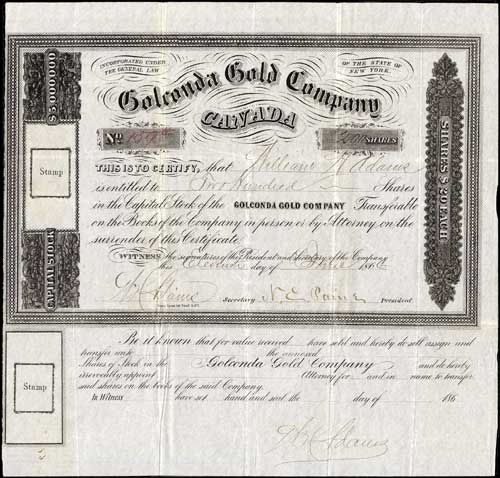 INCORPORATED UNDER THE GENERAL LAW
OF THE STATE OF NEW YORK.
Golconda Gold Company
CANADA
No
200 SHARES
THIS IS TO CERTIFY, that William H Adams
is entitled to Two Hundred Shares
in the Capital Stock of the GOLCONDA GOLD COMPANY Transferable
on the Books of the Company in person or by Attorney on the
surrender of this Certificate
WITNESS the signatures of the President and Secretary of the Company
this Eleventh day of June 186
Secretary N. E. Paine President
$5000000
Stamp
CAPITAL STOCK
SHARES $20 EACH
Be it known that for value received have sold and hereby do sell assign and
transfer unto the annexed
Shares of Stock in the Golconda Gold Company and do hereby
irrevocably appoint Attorney for and in name to transfer
said shares on the books of the said Company.
In Witness have set hand and seal the day of 186
Stamp